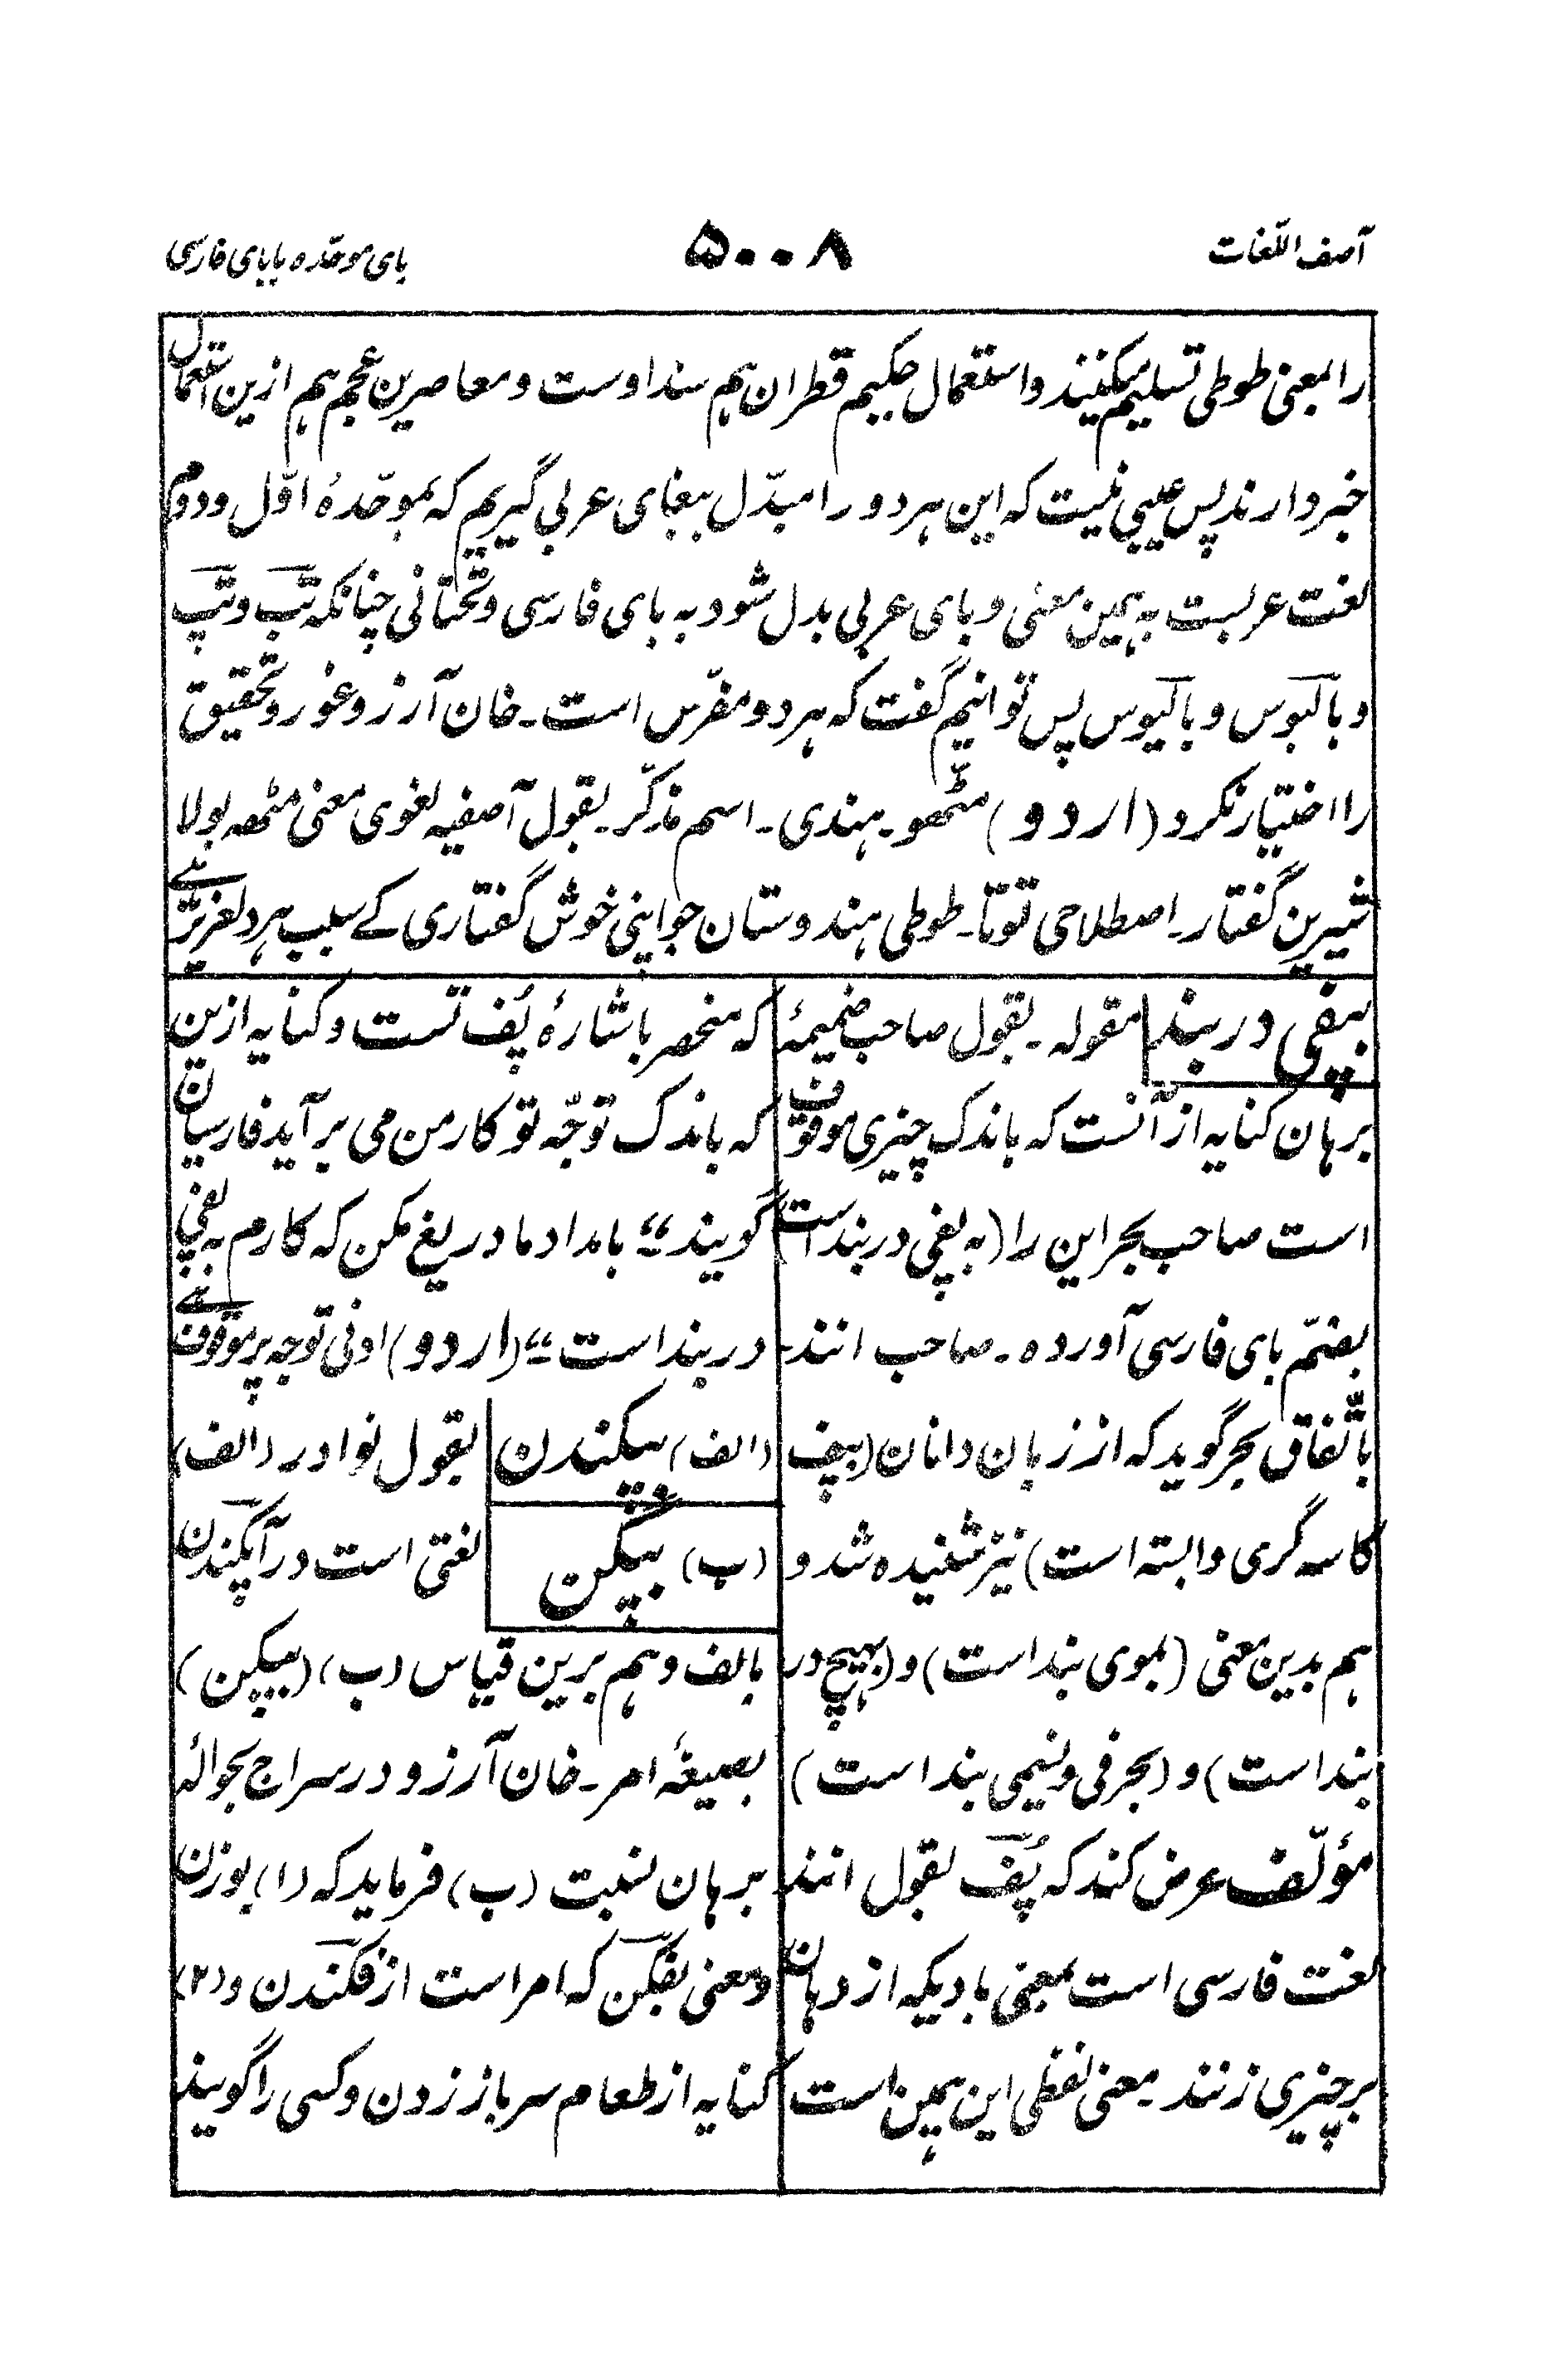 آصف اللّغات
۵۰۰۸
بای موحّده با بای فارسی
را بمعنی طوطی تسلیم میکنند و استعمال حکیم قطران هم سند اوست و معاصرین عجم هم ازین استعمال
خبر دارند پس عیبی نیست که این هر دو را مبدّل ببغای عربی گیریم که بموحّدهٔ اوّل و دوم
لغت عربیست به همین معنی و بای عربی بدل شود به بای فارسی و تحتانی چنانکه تب و تپ
و باکبوس و باکیوس پس توانیم گفت که هر دو مفرّس است۔ خان آرزو غور و تحقیق
را اختیار نکرد (اردو) مٹھو۔ ہندی۔ اسم مذکّر۔ بقول آصفیہ لغوی معنی مٹھ بولا
شیرین گفتار۔ اصطلاحی توتا۔ طوطی ہندوستان جو اپنی خوش گفتاری کے سبب ہر دلعزیز ہے
بپفی در بند مقولہ۔ بقول صاحب ضمیمهٔ
برهان کنایه از آنست که باندک چیزی موقوف
است صاحب بحر این را (به پفی در بند است)
بضمّ بای فارسی آورده۔ صاحب انند
باتّفاق بحر گوید که از زبان دانان (بپف
کاسه گری وابسته است) نیز شنیده شد و
هم بدین معنی (بموی بند است) و (بهیچ در
بند است) و (بحرفی و نیمی بند است)
مؤلّف عرض کند که پُف بقول انند
لغت فارسی است بمعنی بادیکه از دهان
بر چیزی زنند۔ معنی لفظی این همین است
که منحصر باشارهٔ پُف تست و کنایه ازین
که باندک توجّه تو کار من می برآید فارسیان
گویند “بامداد ما دریغ مکن که کارم به پفی
در بند است” (اردو) ادنی توجہ پر موقوف ہے
(الف) بپکندن بقول نوادر (الف)
(ب) بپکن لغتی است در آپکندن
بالف و هم برین قیاس (ب) (بپکن)
بصیغهٔ امر۔ خان آرزو در سراج بحوالهٔ
برهان نسبت (ب) فرماید که (۱) بوزن
و معنی بفکن که امر است از فکندن و (۲)
کنایه از طعام سر باز زدن و کسی را گویند